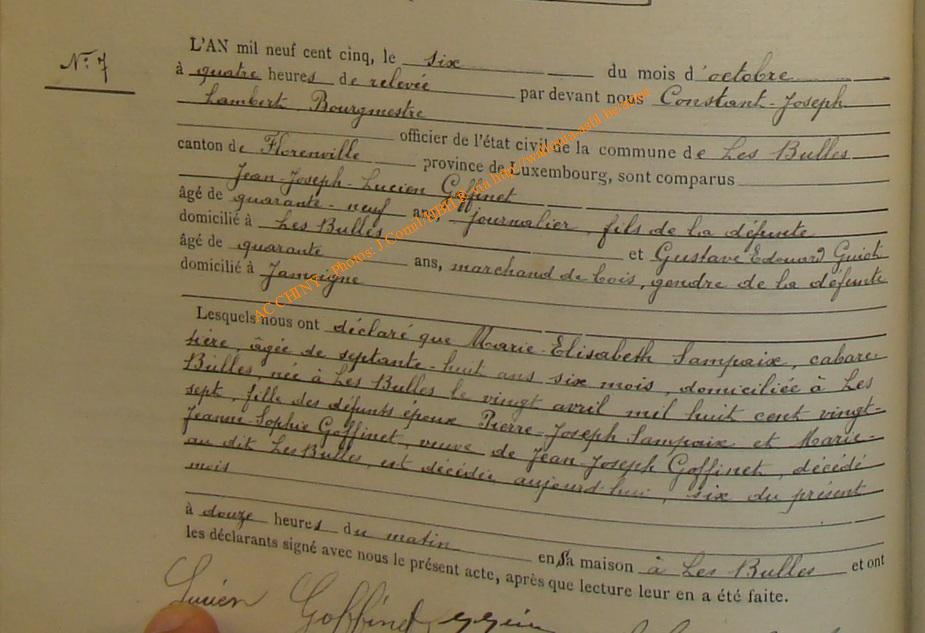 N° 7
L'AN mil neuf cent cinq, le six du mois d'octobre
à quatre heures de relevée par devant nous Constant-Joseph
Lambert, Bourgmestre
officier de l'état civil de la commune de Les Bulles
canton de Florenville province de Luxembourg, sont comparus
Jean-Joseph-Lucien Goffinet
âgé de quarante-neuf ans, journalier, fils de la défunte
domicilié à Les Bulles et Gustave Edouard
âgé de quarante ans, marchand de bois, gendre de la défunte
domicilié à Jamoigne
Lesquels nous ont déclaré que Marie-Elisabeth Lampaix, cabare-
tière, âgée de septante-huit ans six mois, domiciliée à Les
Bulles née à Les Bulles le vingt avril mil huit cent vingt-
sept, fille des défunts époux Pierre-Joseph Lampaix et Marie-
Jeanne-Sophie Goffinet, veuve de Jean-Joseph Goffinet, décédé
au dit Les Bulles, est décédée aujourd'hui, six du présent
mois
à douze heures du matin en sa maison à Les Bulles et ont
les déclarants signé avec nous le présent acte, après que lecture leur en a été faite.
Lucien Goffinet
AC CHINY - Photos: J.Connil